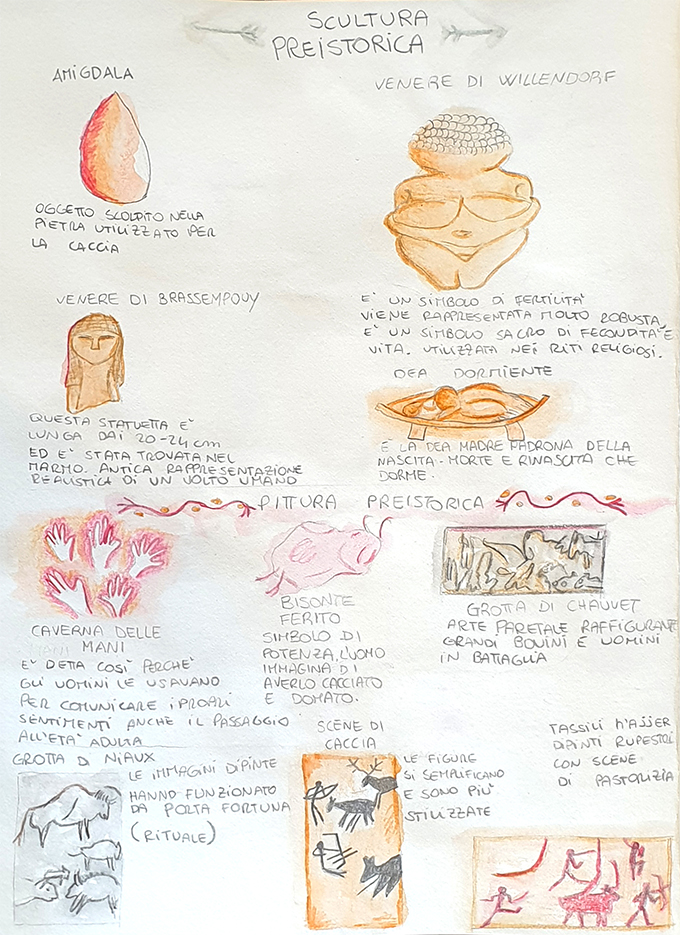 SCULTURA
PREISTORICA
AMIGDALA
OGGETTO SCOLPITO NELLA
PIETRA UTILIZZATO PER
LA CACCIA
VENERE DI WILLENDORF
E' UN SIMBOLO DI FERTILITA'
VIENE RAPPRESENTATA MOLTO ROBUSTA,
E' UN SIMBOLO SACRO DI FECONDITA' E
VITA. UTILIZZATA NEI RITI RELIGIOSI.
VENERE DI BRASSEMPOUY
QUESTA STATUETTA E'
LUNGA DAI 20-24 cm
ED E' STATA TROVATA NEL
MARMO. ANTICA RAPPRESENTAZIONE
REALISTICA DI UN VOLTO UMANO
DEA DORMIENTE
E LA DEA MADRE PADRONA DELLA
NASCITA - MORTE E RINASCITA CHE
DORME.
PITTURA PREISTORICA
CAVERNA DELLE
MANI
E' DETTA COSÌ PERCHE'
GLI UOMINI LE USAVANO
PER COMUNICARE I PROPRI
SENTIMENTI ANCHE IL PASSAGGIO
ALL'ETÀ ADULTA
BISONTE
FERITO
SIMBOLO DI
POTENZA, L'UOMO
IMMAGINA DI
AVERLO CACCIATO
E DOMATO.
GROTTA DI CHAUVET
ARTE PARETALE RAFFIGURANTE
GRANDI BOVINI E UOMINI
IN BATTAGLIA
GROTTA DI NIAUX
LE IMMAGINI DIPINTE
HANNO FUNZIONATO
DA PORTA FORTUNA
(RITUALE)
SCENE DI
CACCIA
LE FIGURE
SI SEMPLIFICANO
E SONO PIÙ
STILIZZATE
TASSILI N'AJJER
DIPINTI RUPESTRI
CON SCENE
DI PASTORIZIA